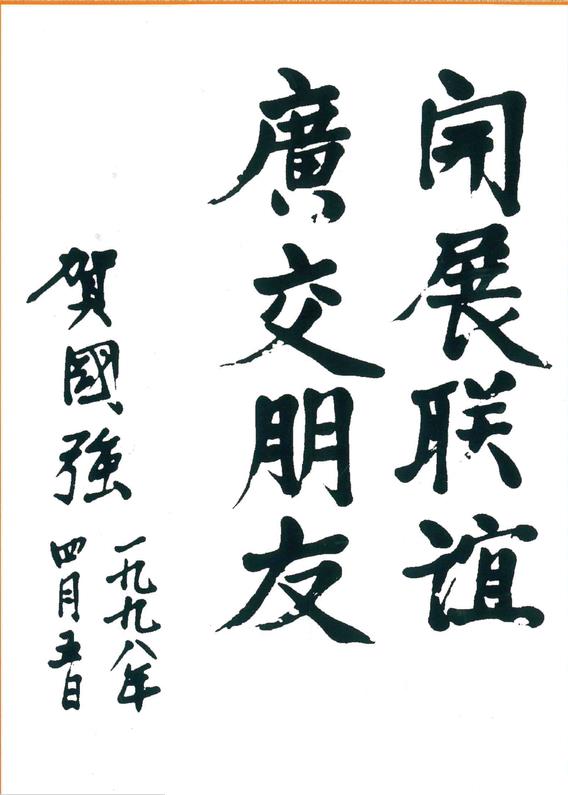 開展联誼
廣交朋友
賀國強
一九九八年
四月五日